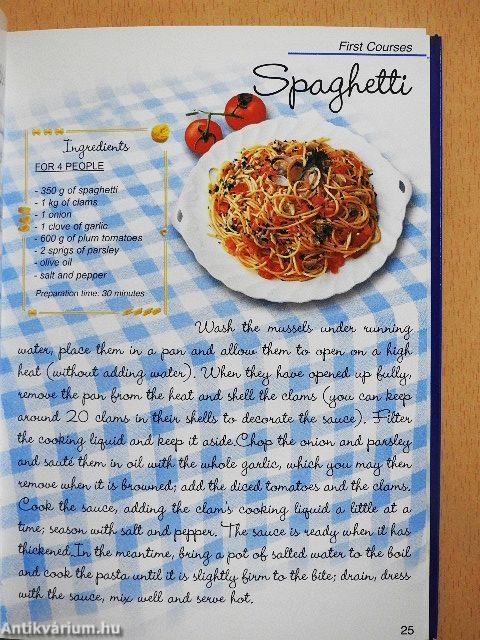 First Courses
Spaghetti
Ingredients
FOR 4 PEOPLE
- 350 g of spaghetti
- 1 kg of clams
- 1 onion
- 1 clove of garlic
- 600 g of plum tomatoes
- 2 sprigs of parsley
- olive oil
- salt and pepper
Preparation time: 30 minutes
Wash the mussels under running
water, place them in a pan and allow them to open on a high
heat (without adding water). When they have opened up fully,
remove the pan from the heat and shell the clams (you can keep
around 20 clams in their shells to decorate the sauce). Filter
the cooking liquid and keep it aside.Chop the onion and parsley
and sauté them in oil with the whole garlic, which you may then
remove when it is browned; add the diced tomatoes and the clams.
Cook the sauce, adding the clam's cooking liquid a little at a
time; season with salt and pepper. The sauce is ready when it has
thickened.In the meantime, bring a pot of salted water to the boil
and cook the pasta until it is slightly firm to the bite; drain, dress
with the sauce, mix well and serve hot.
25
Antikvárium.hu